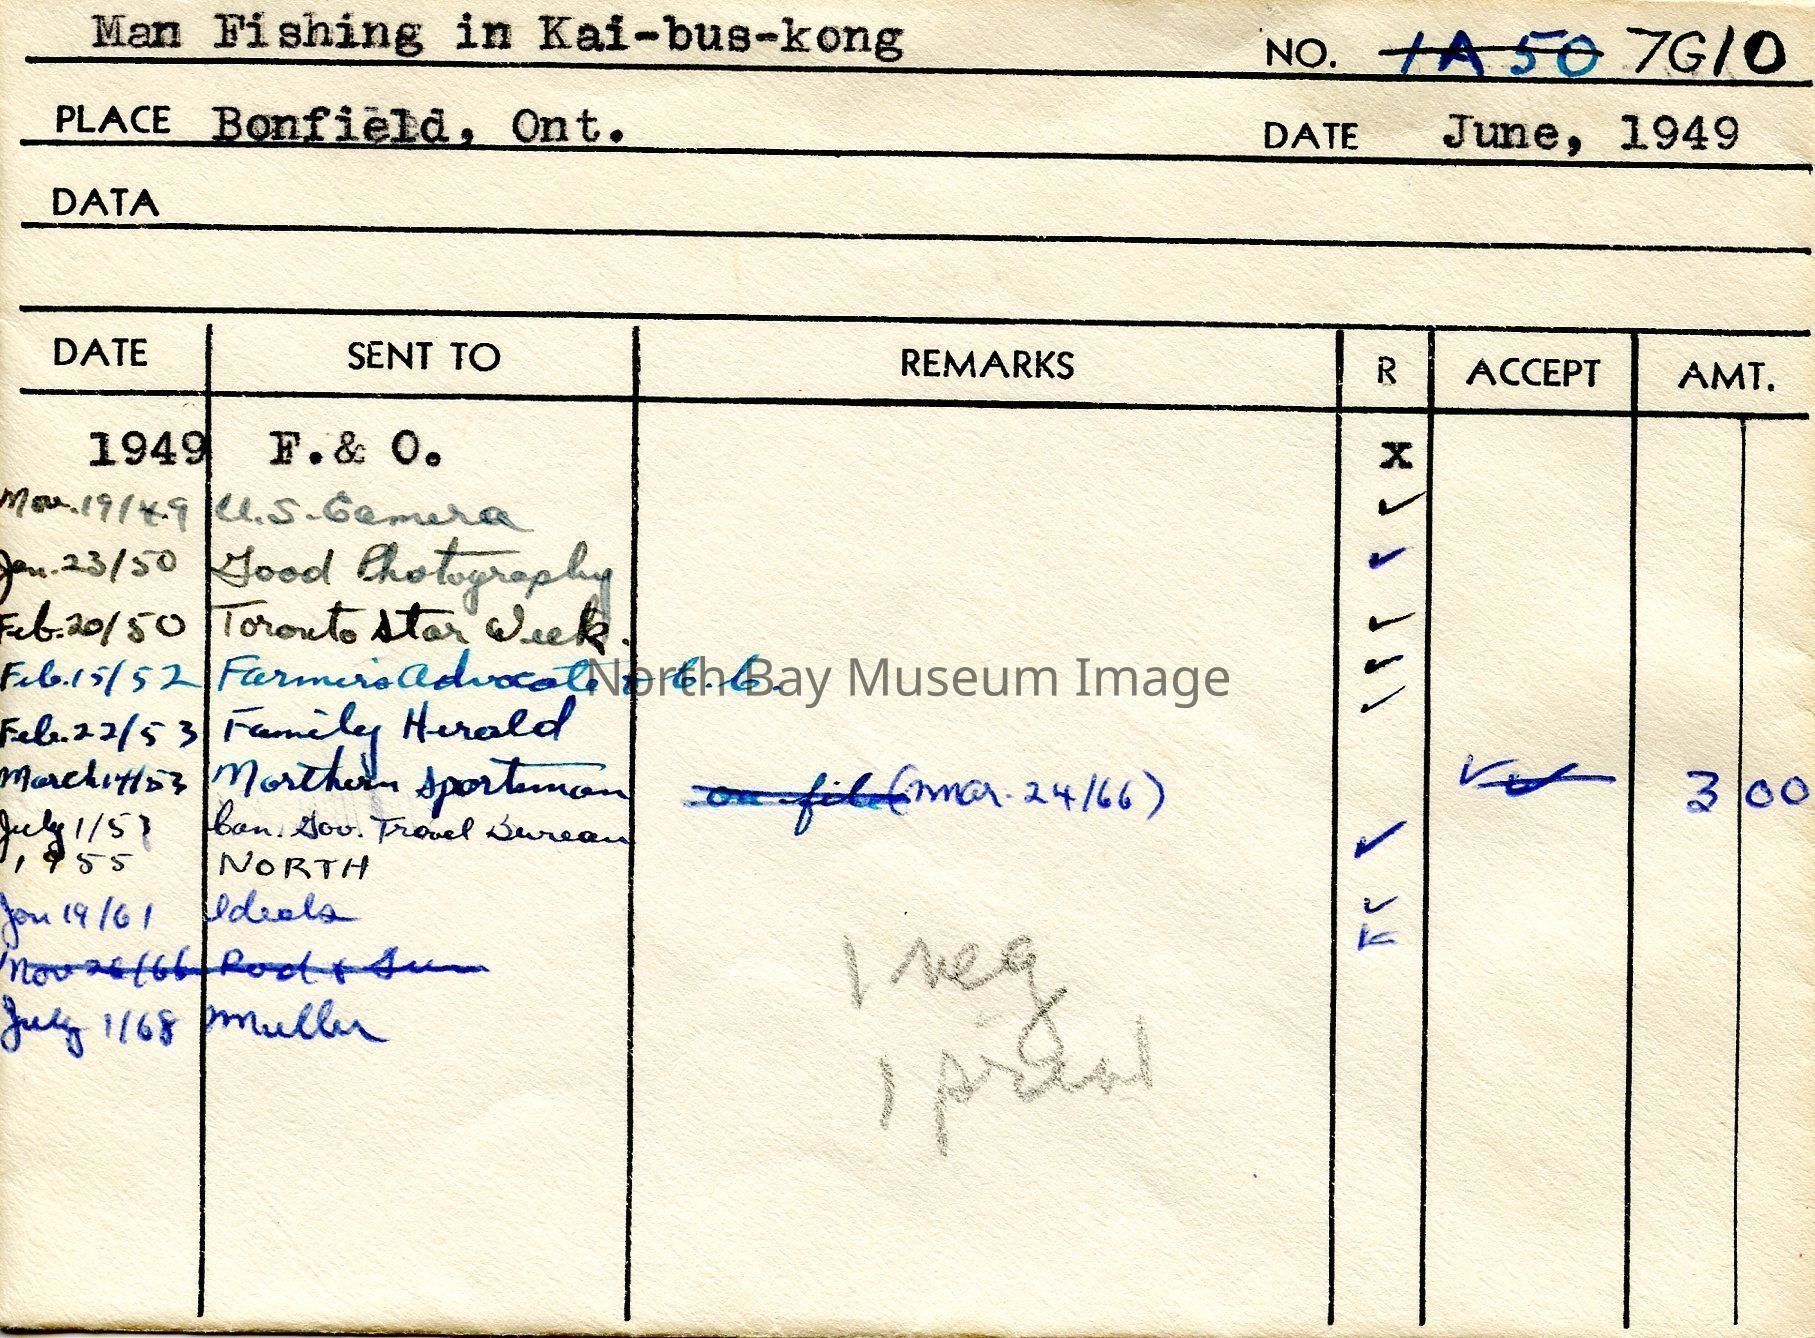 Man Fishing in Kai-bus-kong
NO. 1A50 7G10
PLACE Bonfield, Ont.
DATE June, 1949
DATA
DATE SENT TO REMARKS R ACCEPT AMT.
1949 F. & O. x
Nov. 19/49 U.S. Camera ✓
Jan. 23/50 Good Photography ✓
Feb. 20/50 Toronto Star Week. ✓
Feb. 15/52 Farmer's Advocate & C.C. ✓
Feb. 22/53 Family Herald ✓
March 14/53 Northern Sportsman on file (Mar. 24/66) ✓ 3 00
July 1/53 Can. Gov. Travel Bureau ✓
1955 NORTH
Jan 19/61 Ideals ✓
Nov 26/66 Rod & Gun
July 1/68 Muller
1 neg
1
North Bay Museum Image